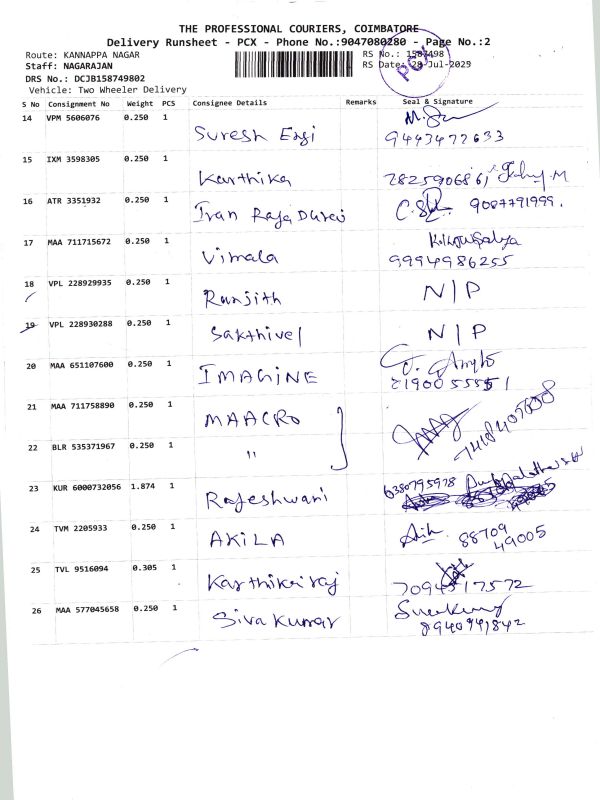 THE PROFESSIONAL COURIERS, COIMBATORE
Delivery Runsheet - PCX - Phone No.:9047080280 - Page No.:2
Route: KANNAPPA NAGAR RS No.: 1587498
Staff: NAGARAJAN RS Date: 28-Jul-2025
DRS No.: DCJB158749802
Vehicle: Two Wheeler Delivery
PCX
S No Consignment No Weight PCS Consignee Details Remarks Seal & Signature
14 VPM 5606076 0.250 1 Suresh Engi
9443477633
15 IXM 3598305 0.250 1 Karthika
16 ATR 3351932 0.250 1 Ivan Raja Durai 9087791999.
17 MAA 711715672 0.250 1 Vimala
9994986255
18 VPL 228929935 0.250 1 Ranjith N/P
19 VPL 228930288 0.250 1 Sakthivel N/P
20 MAA 651107600 0.250 1 IMAGINE
21 MAA 711758890 0.250 1 MAACRO
22 BLR 535371967 0.250 1 "
23 KUR 6000732056 1.874 1 Rajeshwari 6380795978
24 TVM 2205933 0.250 1 AKILA 88709
49005
25 TVL 9516094 0.305 1 Karthikairaj
7094517572
26 MAA 577045658 0.250 1 Siva Kumar
8940941842